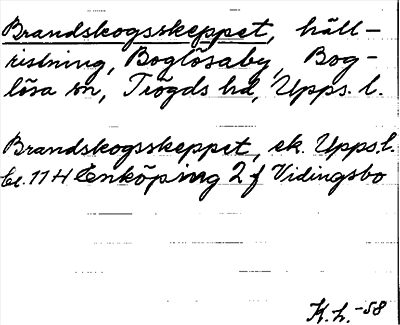 Brandskogsskeppet, häll-
ristning, Boglösaby, Bog-
lösa sn, Trögds hd, Upps. l.
Brandskogsskeppet, ek. Upps. l.
bl. 11 H Enköping 2 f Vidingsbo
K.L. -58